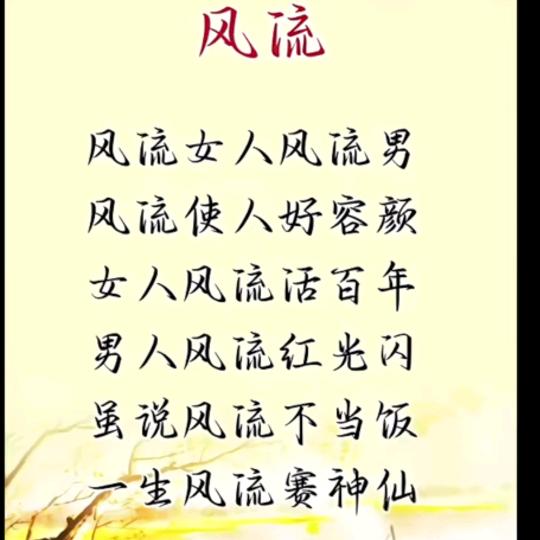 风流
风流女人风流男
风流使人好容颜
女人风流活百年
男人风流红光闪
虽说风流不当饭
一生风流赛神仙